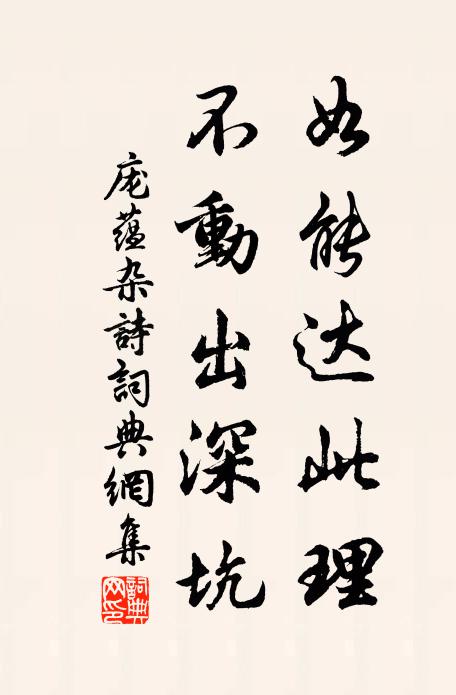 如能达此理
不動出深坑
庞蕴杂詩詞典網集
詞典網印